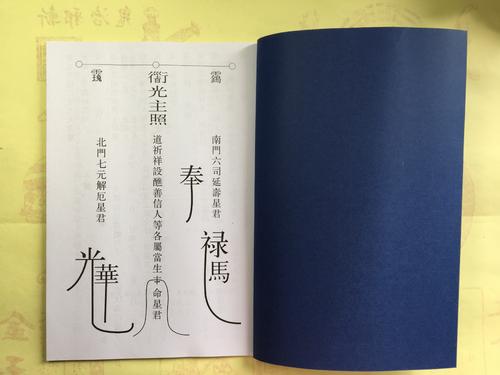 斬邪治鬼
南門六司延壽星君
奉
禄馬
光主照
道祈祥設醮善信人等各屬當生
命星君
北門七元解厄星君
光華
金